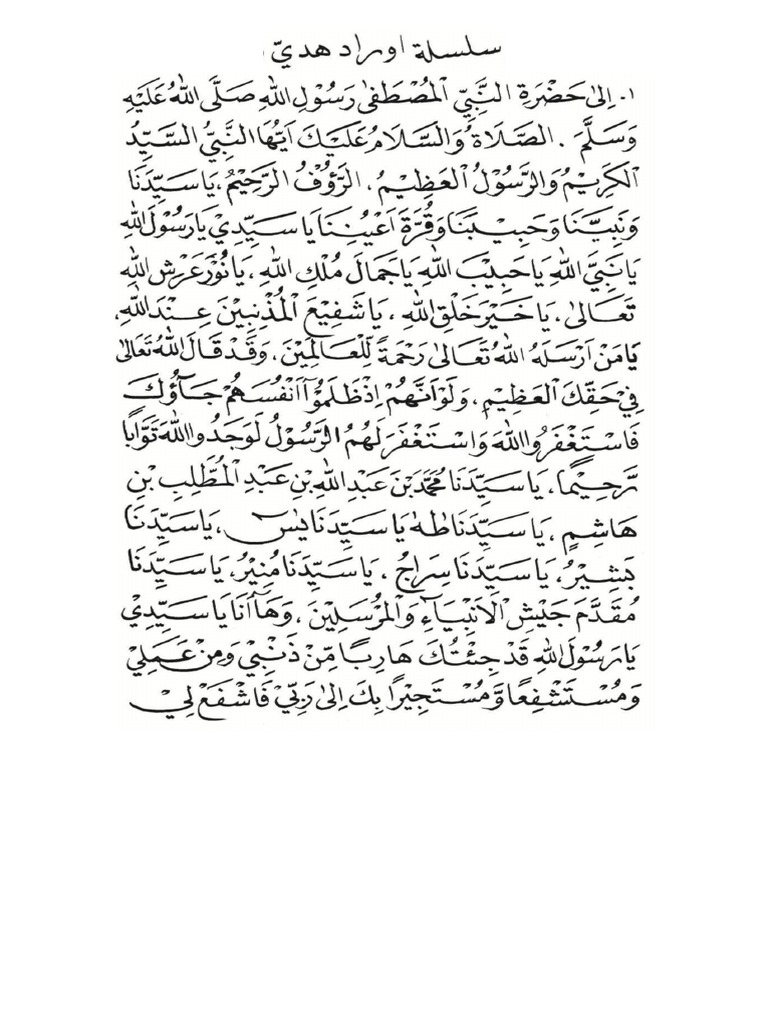 سلسلة اوراد هديّ
١. اِلىٰ حَضْرَةِ النَّبِيِّ الْمُصْطَفىٰ رَسُوْلِ اللهِ صَلَّى اللهُ عَلَيْهِ
وَسَلَّمَ . الصَّلَاةُ وَالسَّلَامُ عَلَيْكَ اَيُّهَا النَّبِيُّ السَّيِّدُ
الْكَرِيْمُ وَالرَّسُوْلُ الْعَظِيْمُ، الرَّؤُوْفُ الرَّحِيْمُ، يَا سَيِّدَنَا
وَنَبِيَّنَا وَحَبِيْبَنَا وَقُرَّةَ اَعْيُنِنَا يَا سَيِّدِيْ يَا رَسُوْلَ اللهِ
يَا نَبِيَّ اللهِ يَا حَبِيْبَ اللهِ يَا جَمَالَ مُلْكِ اللهِ، يَا نُوْرَ عَرْشِ اللهِ
تَعَالىٰ، يَا خَيْرَ خَلْقِ اللهِ ، يَا شَفِيْعَ الْمُذْنِبِيْنَ عِنْدَ اللهِ،
يَا مَنْ اَرْسَلَهُ اللهُ تَعَالىٰ رَحْمَةً لِّلْعَالَمِيْنَ، وَقَدْ قَالَ اللهُ تَعَالىٰ
فِيْ حَقِّكَ الْعَظِيْمِ، وَلَوْ اَنَّهُمْ اِذْ ظَلَمُوْآ اَنْفُسَهُمْ جَآؤُوْكَ
فَاسْتَغْفَرُوا اللهَ وَاسْتَغْفَرَ لَهُمُ الرَّسُوْلُ لَوَجَدُوا اللهَ تَوَّابًا
رَّحِيْمًا، يَا سَيِّدَنَا مُحَمَّدَ بْنَ عَبْدِ اللهِ بْنِ عَبْدِ الْمُطَّلِبِ بْنِ
هَاشِمٍ ، يَا سَيِّدَنَا طٰهٰ يَا سَيِّدَنَا يٰسٓ ، يَا سَيِّدَنَا
بَشِيْرُ، يَا سَيِّدَنَا سِرَاجُ ، يَا سَيِّدَنَا مُنِيْرُ، يَا سَيِّدَنَا
مُقَدَّمَ جَيْشِ الْاَنْبِيَآءِ وَالْمُرْسَلِيْنَ ، وَهَآ اَنَا يَا سَيِّدِيْ
يَا رَسُوْلَ اللهِ قَدْ جِئْتُكَ هَارِبًا مِّنْ ذَنْبِيْ وَمِنْ عَمَلِيْ
وَمُسْتَشْفِعًا وَّمُسْتَجِيْرًا بِكَ اِلىٰ رَبِّيْ فَاشْفَعْ لِيْ